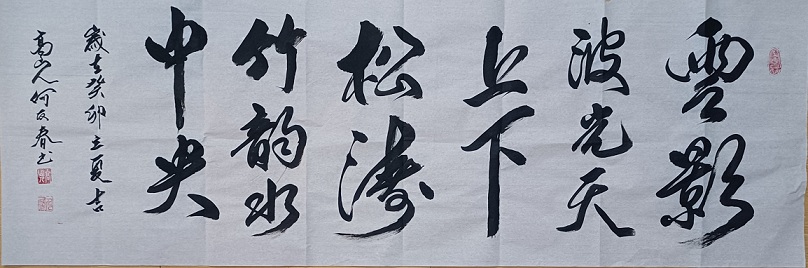 雲影
波光天
上下
松濤
竹韵水
中央
歲在癸卯立夏吉
高山人何友春书